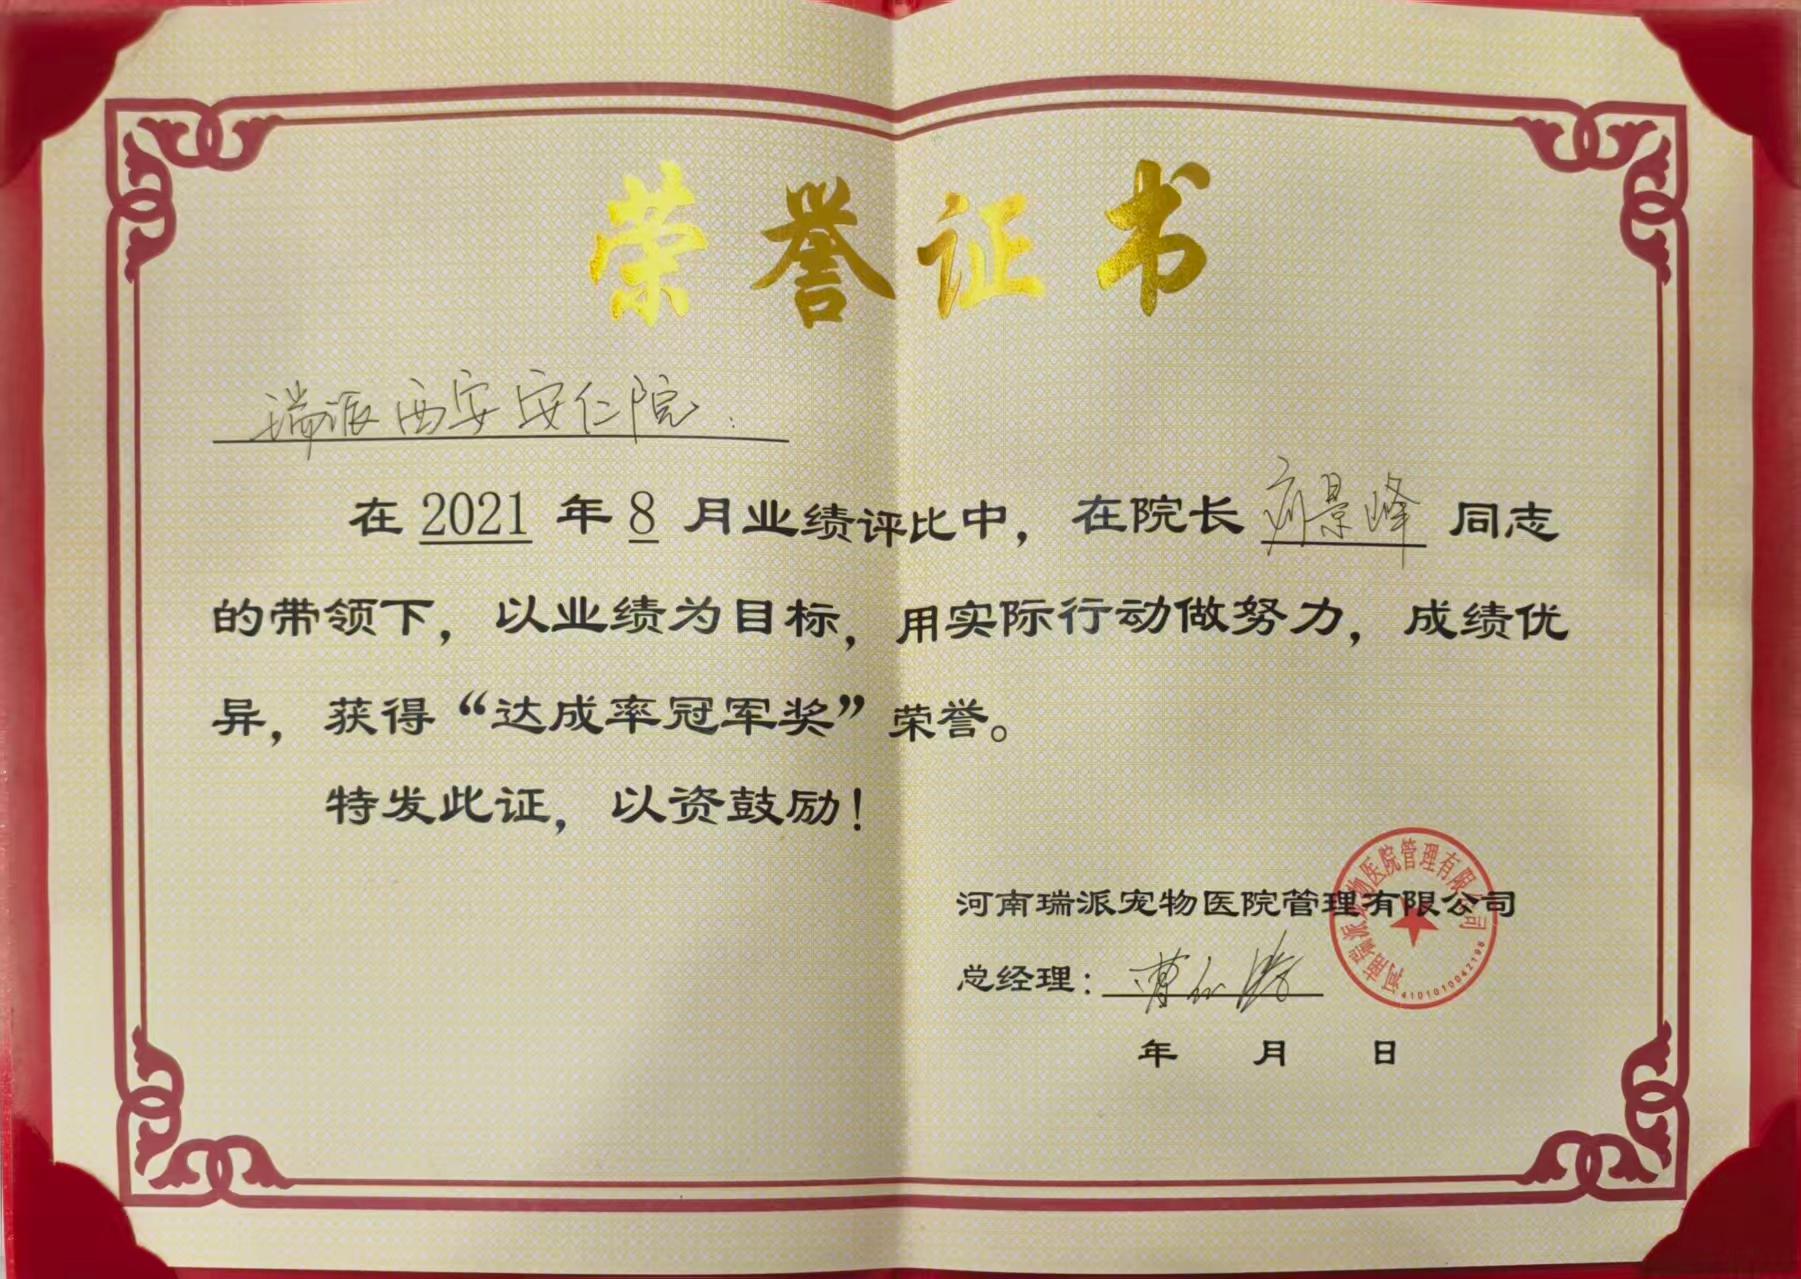 荣誉证书
瑞派西安安仁院:
在 2021 年 8 月业绩评比中，在院长 景峰 同志
的带领下，以业绩为目标，用实际行动做努力，成绩优
异，获得“达成率冠军奖”荣誉。
特发此证，以资鼓励！
河南瑞派宠物医院管理有限公司
总经理：曹
年 月 日
河南瑞派宠物医院管理有限公司
4101010042198